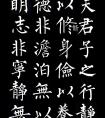 夫君子之行
以修身儉以養
德非澹泊無以
明志非寧靜無